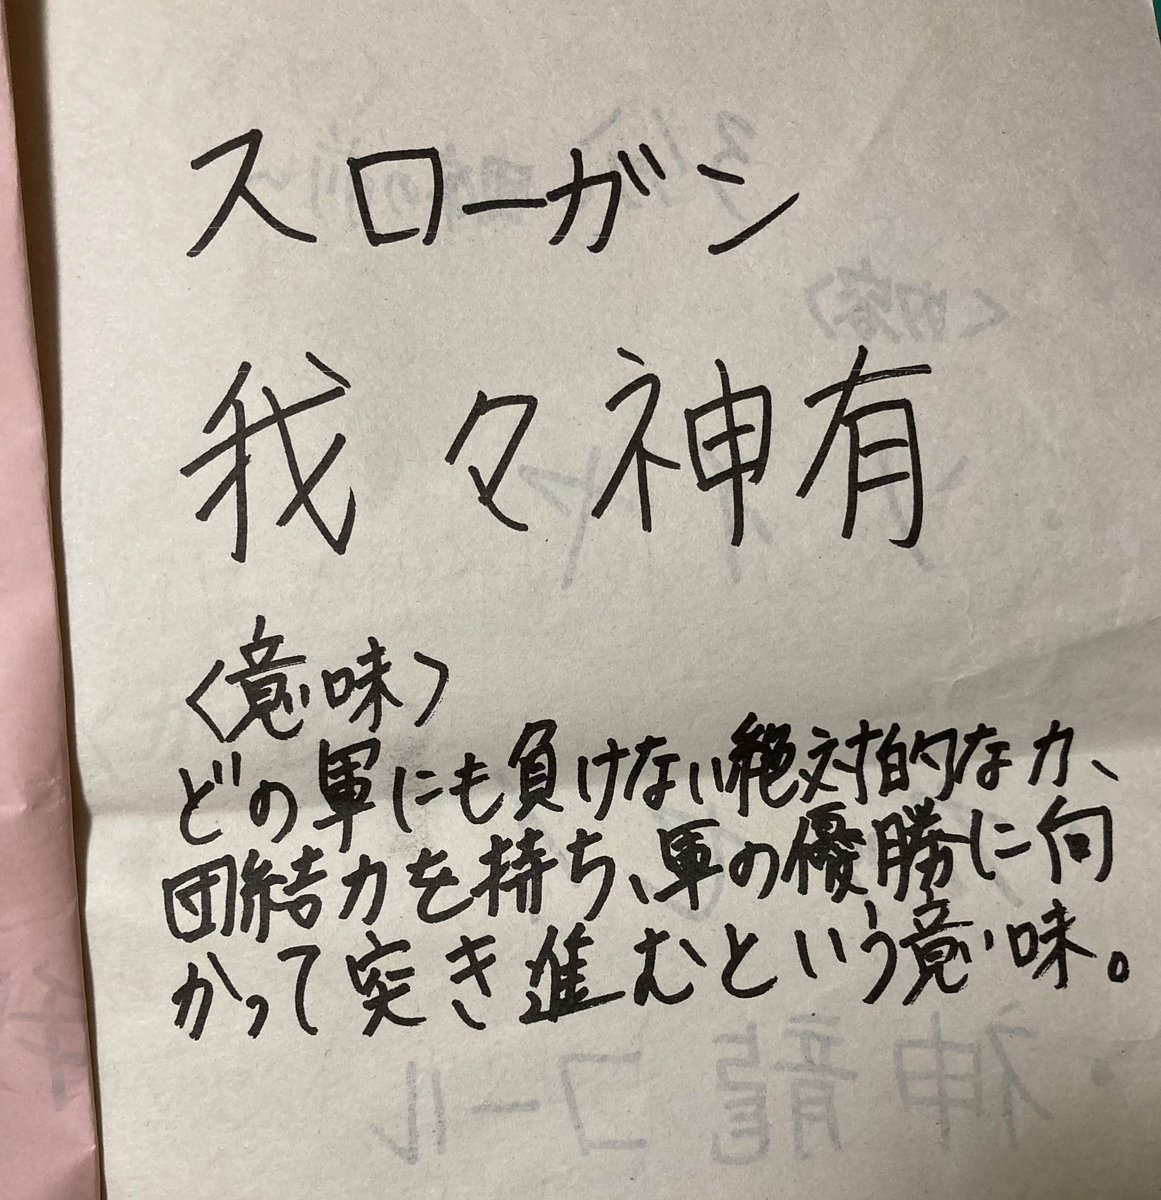 スローガン
我々神有
〈意味〉
どの軍にも負けない絶対的な力、
団結力を持ち、軍の優勝に向
かって突き進むという意味。
神龍コール